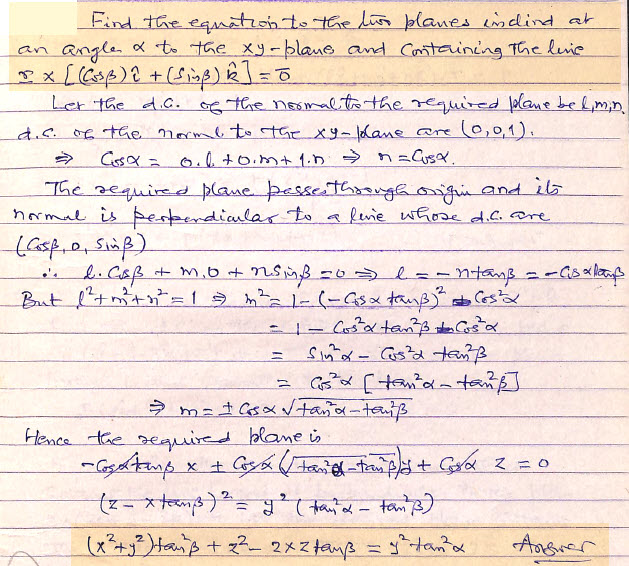 Find the equation to the two planes inclind at
an angle α to the xy-plane and Containing the line
r × [(Cosβ) î + (Sinβ) k̂] = 0̄
Let the d.c. of the normal to the required plane be l,m,n.
d.c. of the normal to the xy-plane are (0,0,1).
⇒ Cosα = 0.l + 0.m + 1.n ⇒ n = Cosα.
The required plane passes through origin and its
normal is perpendicular to a line whose d.c. are
(Cosβ, 0, Sinβ)
∴ l.Cosβ + m.0 + n Sinβ = 0 ⇒ l = - n tanβ = - Cosα tanβ
But l² + m² + n² = 1 ⇒ m² = 1 - (-Cosα tanβ)² - Cos²α
= 1 - Cos²α tan²β - Cos²α
= Sin²α - Cos²α tan²β
= Cos²α [tan²α - tan²β]
⇒ m = ± Cosα √tan²α - tan²β
Hence the required plane is
- Cosα tanβ x ± Cosα (√tan²α - tan²β) y + Cosα z = 0
(z - x tanβ)² = y² (tan²α - tan²β)
(x² + y²) tan²β + z² - 2xz tanβ = y² tan²α Answer